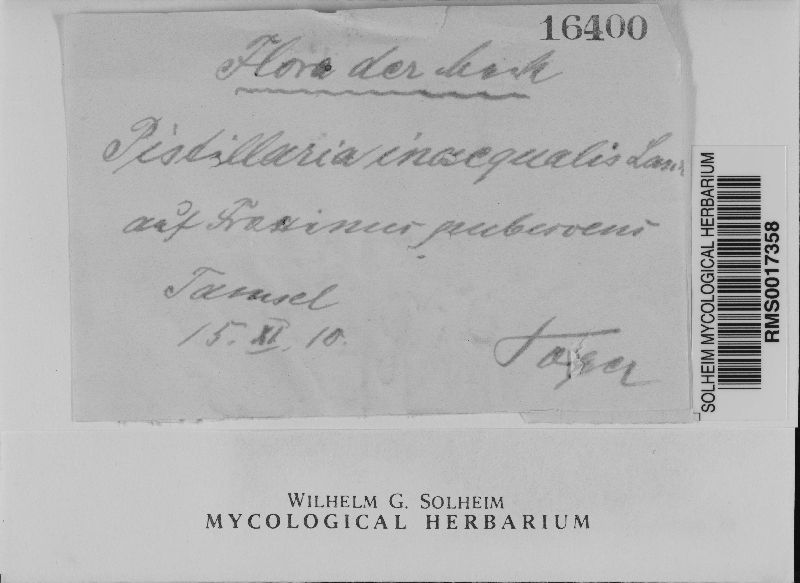 16400
Flora der Mark
Pistillaria inaequalis Lasch
auf Fraxinus pubescens
Tamsel
15. XI. 10.
SOLHEIM MYCOLOGICAL HERBARIUM
RMS0017358
WILHELM G. SOLHEIM
MYCOLOGICAL HERBARIUM